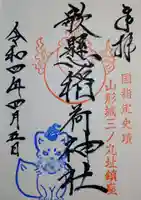 奉拝
国指定史蹟
山形城三ノ丸址鎮座
歌懸稲荷神社
令和四年四月五日